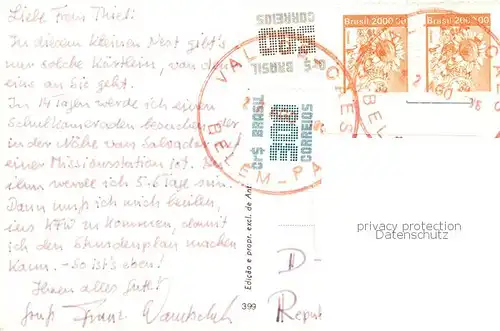 Liebe Frau Thiel!
In diesem kleinen Nest gibt's
nur solche Kärtlein, von denen
eine an Sie geht.
In 14 Tagen werde ich einen
Schulkameraden besuchen, der
in der Nähe von Salvador
einer Missionsstation ist. Bei
ihm werde ich 5-6 Tage sein.
Dann muß ich mich beeilen,
ins KFW zu kommen, damit
ich den Stundenplan machen
kann. - So ist's eben!
Ihnen alles Gute!
Gruß Franz
399
Edição e propr. excl. de
CORREIOS
BRASIL
Cr$
Cr$ BRASIL
CORREIOS
Brasil 2000,00
Brasil 2000,00
VAL
BELÉM-PA
AGO
D-
Repub
privacy protection
Datenschutz